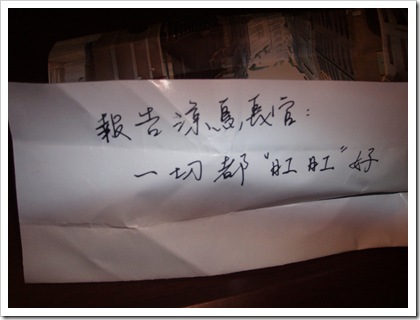 報告涼馬長官：
一切都“旺旺”好